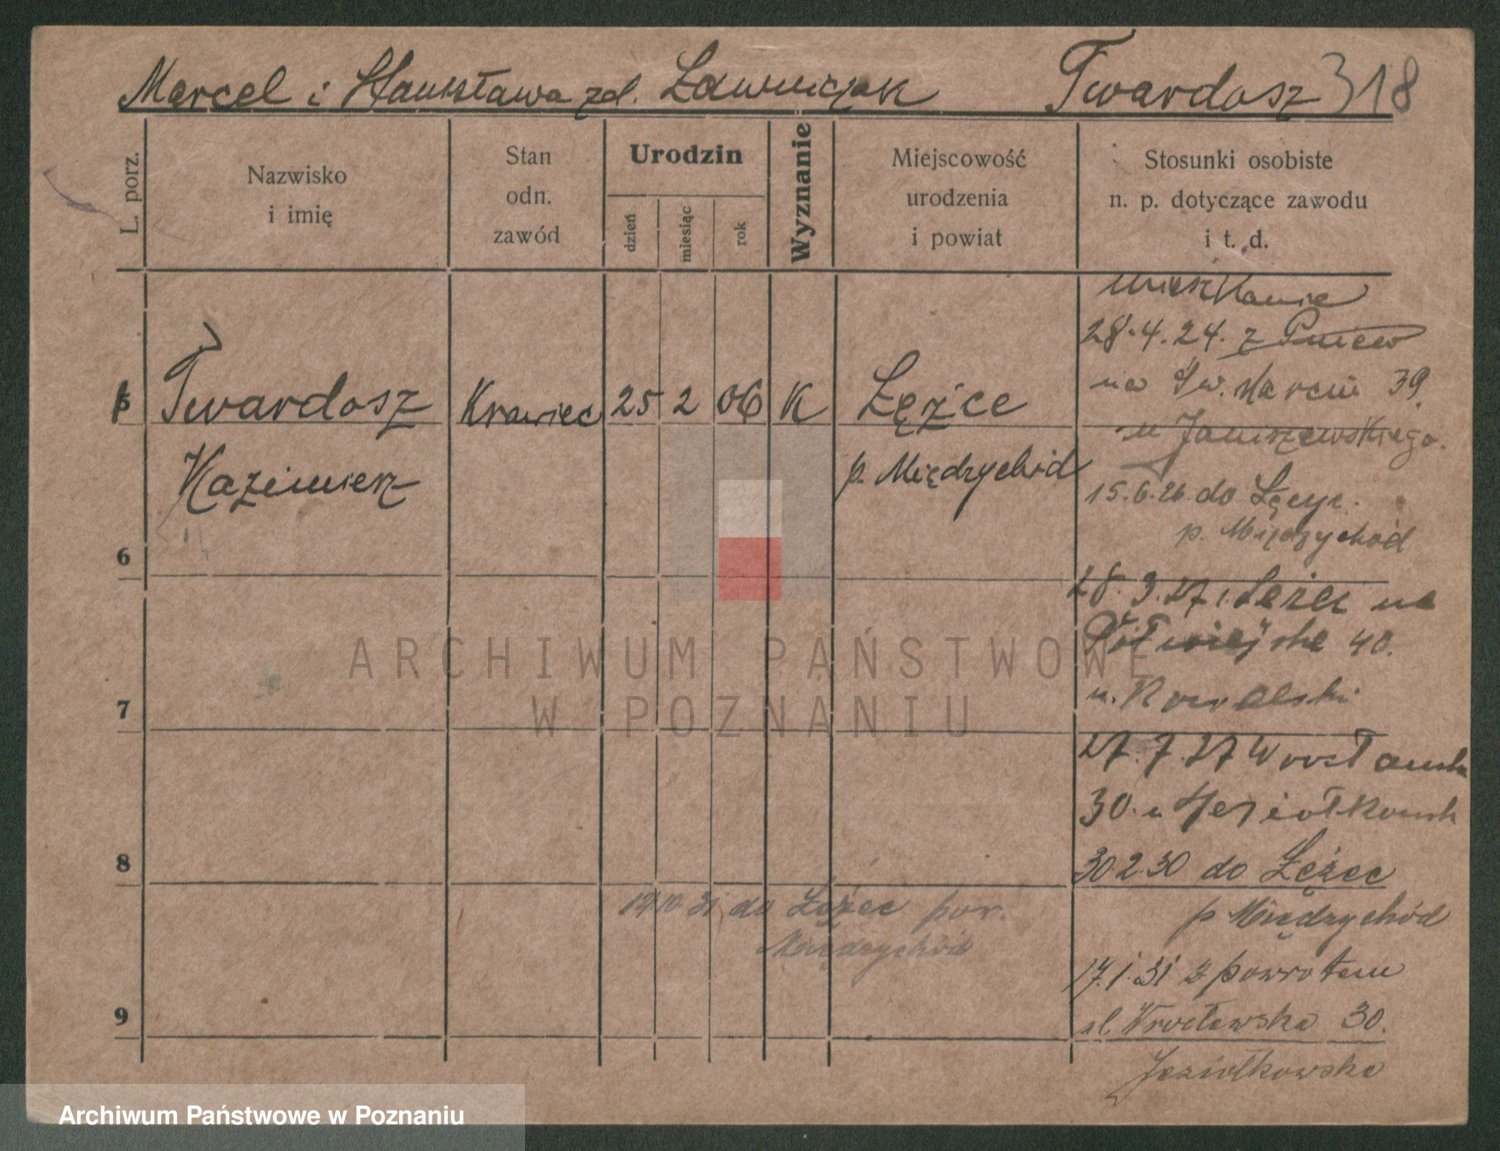 Marcel i Stanisława zd. Ławniczak Twardosz 318
L. porz.
Nazwisko
i imię
Stan
odn.
zawód
Urodzin
dzień
miesiąc
rok
Wyznanie
Miejscowość
urodzenia
i powiat
Stosunki osobiste
n. p. dotyczące zawodu
i t. d.
5 Twardosz Krawiec 25 2 06 K Łężce
Kazimierz p. Międzychód
28.4.24. z Pniew
na Św. Marcin 39.
u Janiszewskiego.
15.6.26 do
p. Międzychód
6
28.3.27 na
Półwiejska 40.
u. Kowalski
7
27.7.27
30. u
30 2 30 do Łężec
p Międzychód
8
17 10 31 do Łężec pow.
Międzychód
17.1.31 z powrotem
ul. Wrocławska 30.
Jeziołkowska
9
ARCHIWUM PAŃSTWOWE
W POZNANIU
Archiwum Państwowe w Poznaniu